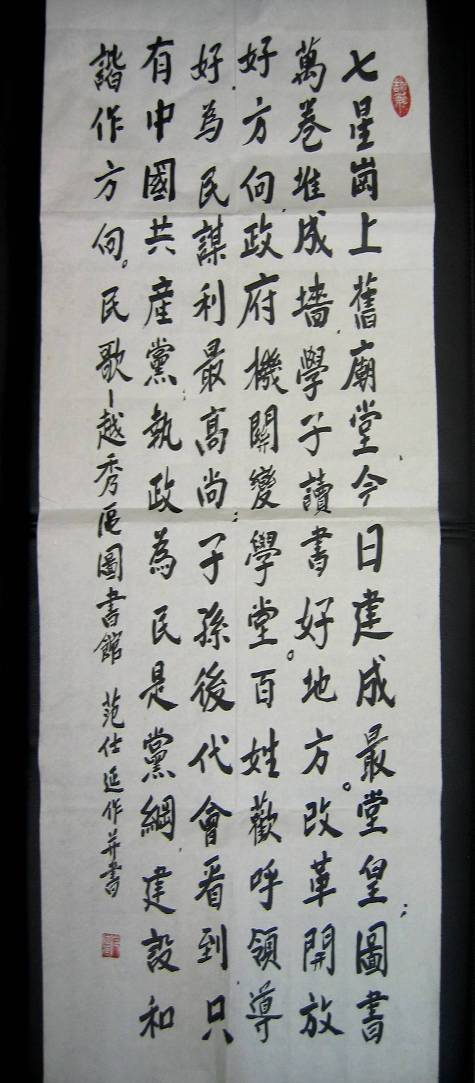 七星崗上舊廟堂,今日建成最堂皇;圖書
萬卷堆成墙,學子讀書好地方。改革開放
好方向,政府機關變學堂。百姓歡呼領導
好,為民謀利最高尚;子孫後代會看到,只
有中國共産黨;執政為民是黨綱,建設和
諧作方向。民歌-越秀區圖書館 范仕延作并書